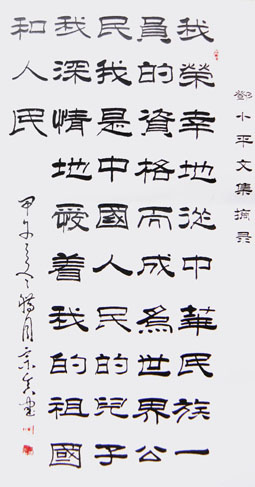 鄧小平文集摘录
我榮幸地從中華民族一
員的資格而成為世界公
民我是中國人民的兒子
我深情地愛着我的祖國
和人民
甲午